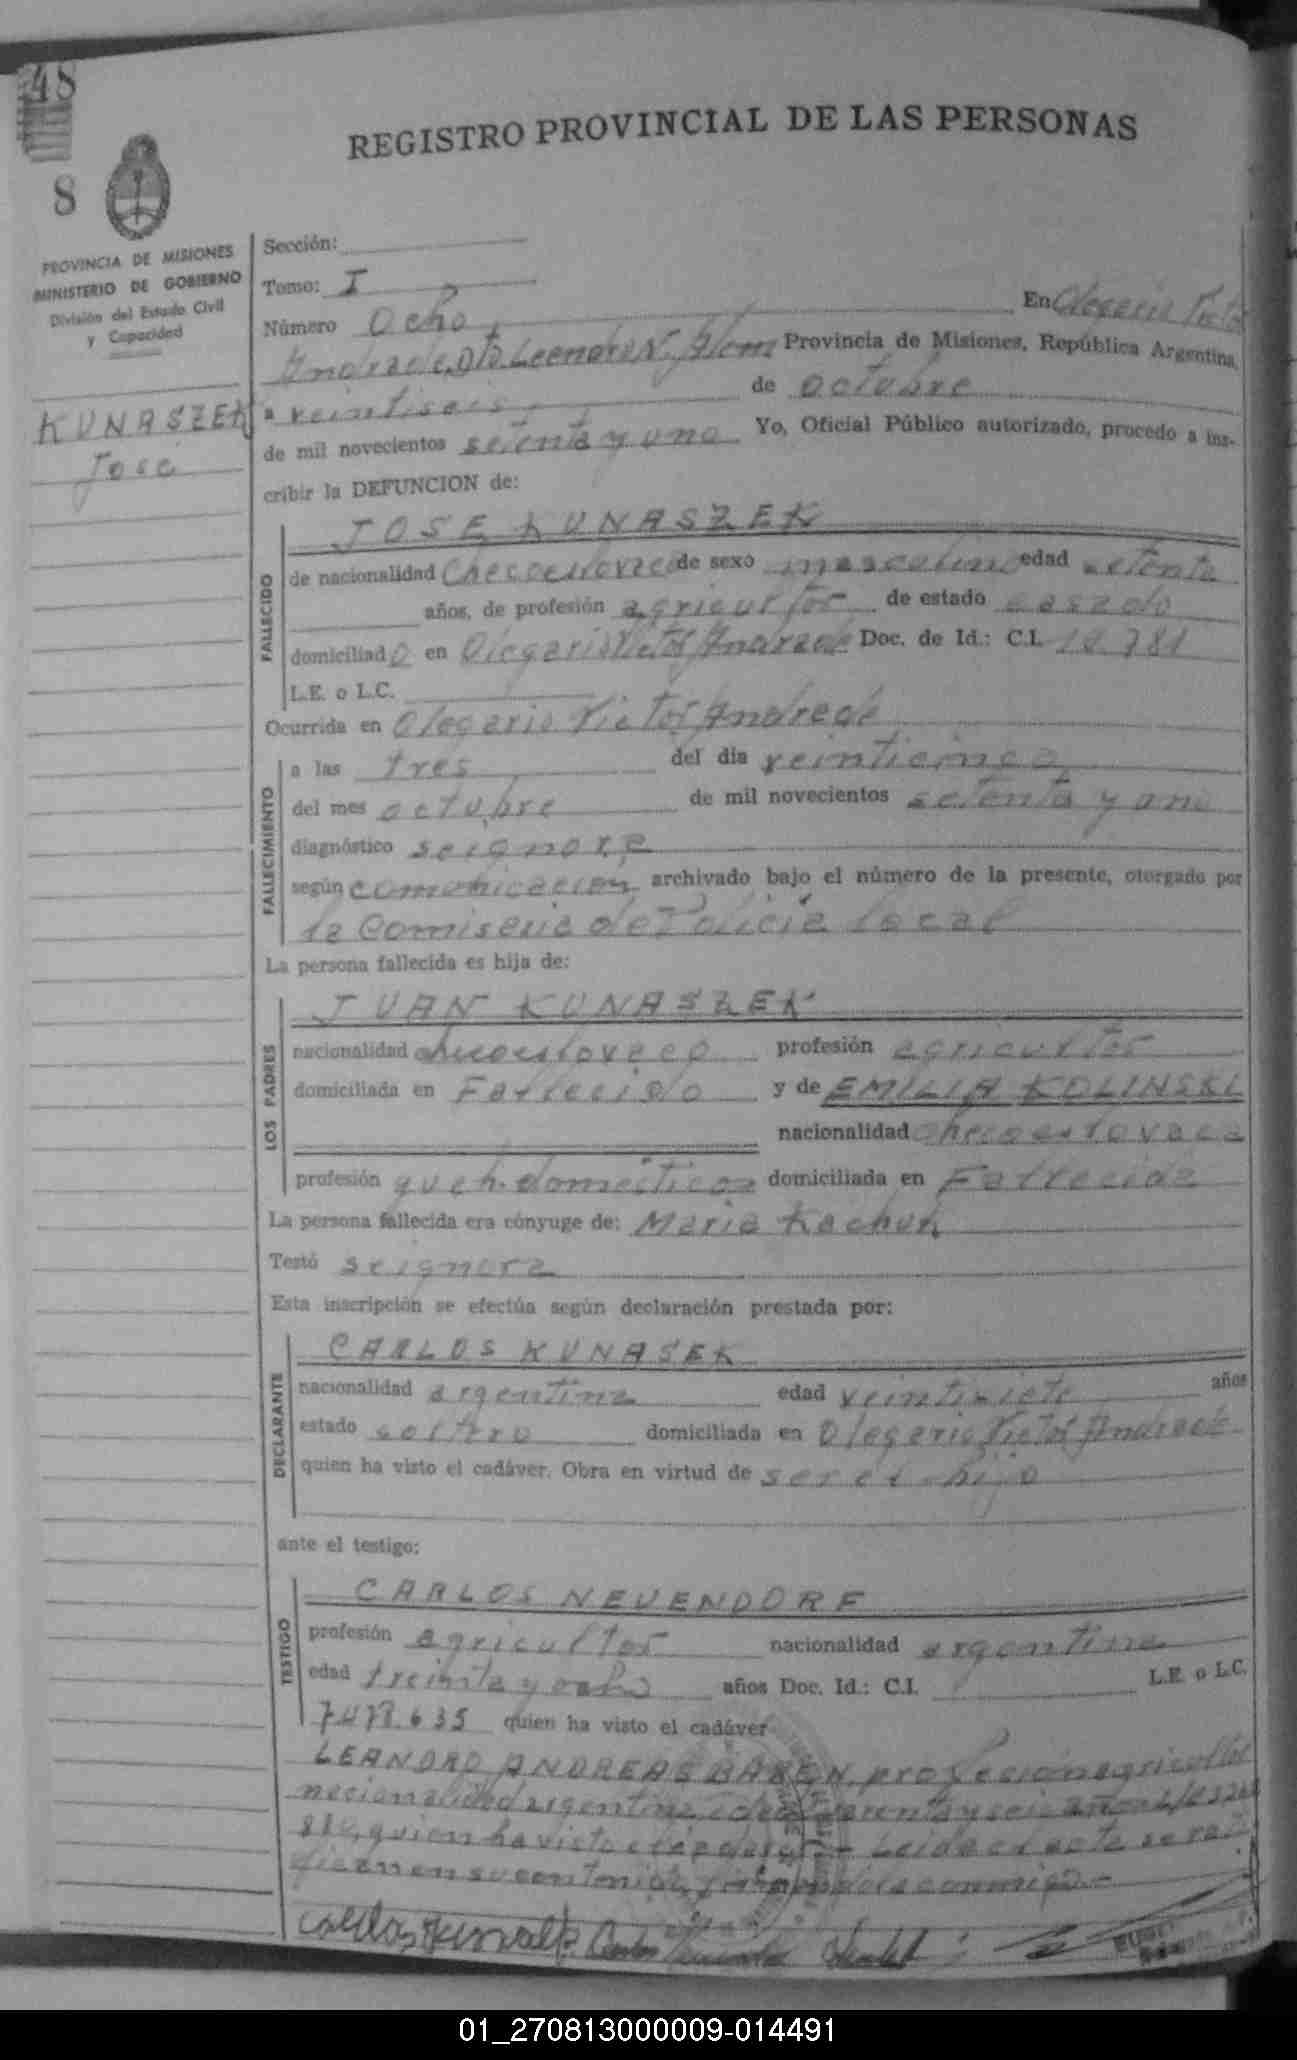 48
REGISTRO PROVINCIAL DE LAS PERSONAS
8
PROVINCIA DE MISIONES
MINISTERIO DE GOBIERNO
División del Estado Civil
y Capacidad
KUNASZEK
José
Sección:
Tomo: I
Número Ocho En Olegario Victor
Andrade, Dto. Leandro N. Alem Provincia de Misiones, República Argentina,
a veintiseis de octubre
de mil novecientos setenta y uno Yo, Oficial Público autorizado, procedo a ins-
cribir la DEFUNCION de:
FALLECIDO
JOSE KUNASZEK
de nacionalidad Checoeslovaco de sexo masculino edad setenta
años, de profesión agricultor de estado casado
domiciliado en Olegario Victor Andrade Doc. de Id.: C.I. 10.781
L.E. o L.C.
Ocurrida en Olegario Victor Andrade
FALLECIMIENTO
a las tres del dia veinticinco
del mes octubre de mil novecientos setenta y uno
diagnóstico se ignora
según comunicación archivado bajo el número de la presente, otorgado por
la Comisaria de Policia local
La persona fallecida es hija de:
LOS PADRES
JUAN KUNASZEK
nacionalidad checoeslovaco profesión agricultor
domiciliada en Fallecido y de EMILIA KOLINSKI
nacionalidad checoeslovaca
profesión queh. domesticos domiciliada en Fallecida
La persona fallecida era cónyuge de: Maria Kachuk
Testó se ignora
Esta inscripción se efectúa según declaración prestada por:
DECLARANTE
CARLOS KUNASEK
nacionalidad argentina edad veintisiete años
estado soltero domiciliada en Olegario Victor Andrade
quien ha visto el cadáver. Obra en virtud de ser el hijo
ante el testigo:
TESTIGO
CARLOS NEUENDORF
profesión agricultor nacionalidad argentina
edad treinta y ocho años Doc. Id.: C.I. L.E. o L.C.
7.478.635 quien ha visto el cadáver
LEANDRO ANDREAS BAREN, profesión agricultor
nacionalidad argentina edad y seis años
quien ha visto el cadaver.- Leida el acta se rati
fican en su contenido, firmandola conmigo.-
01_270813000009-014491